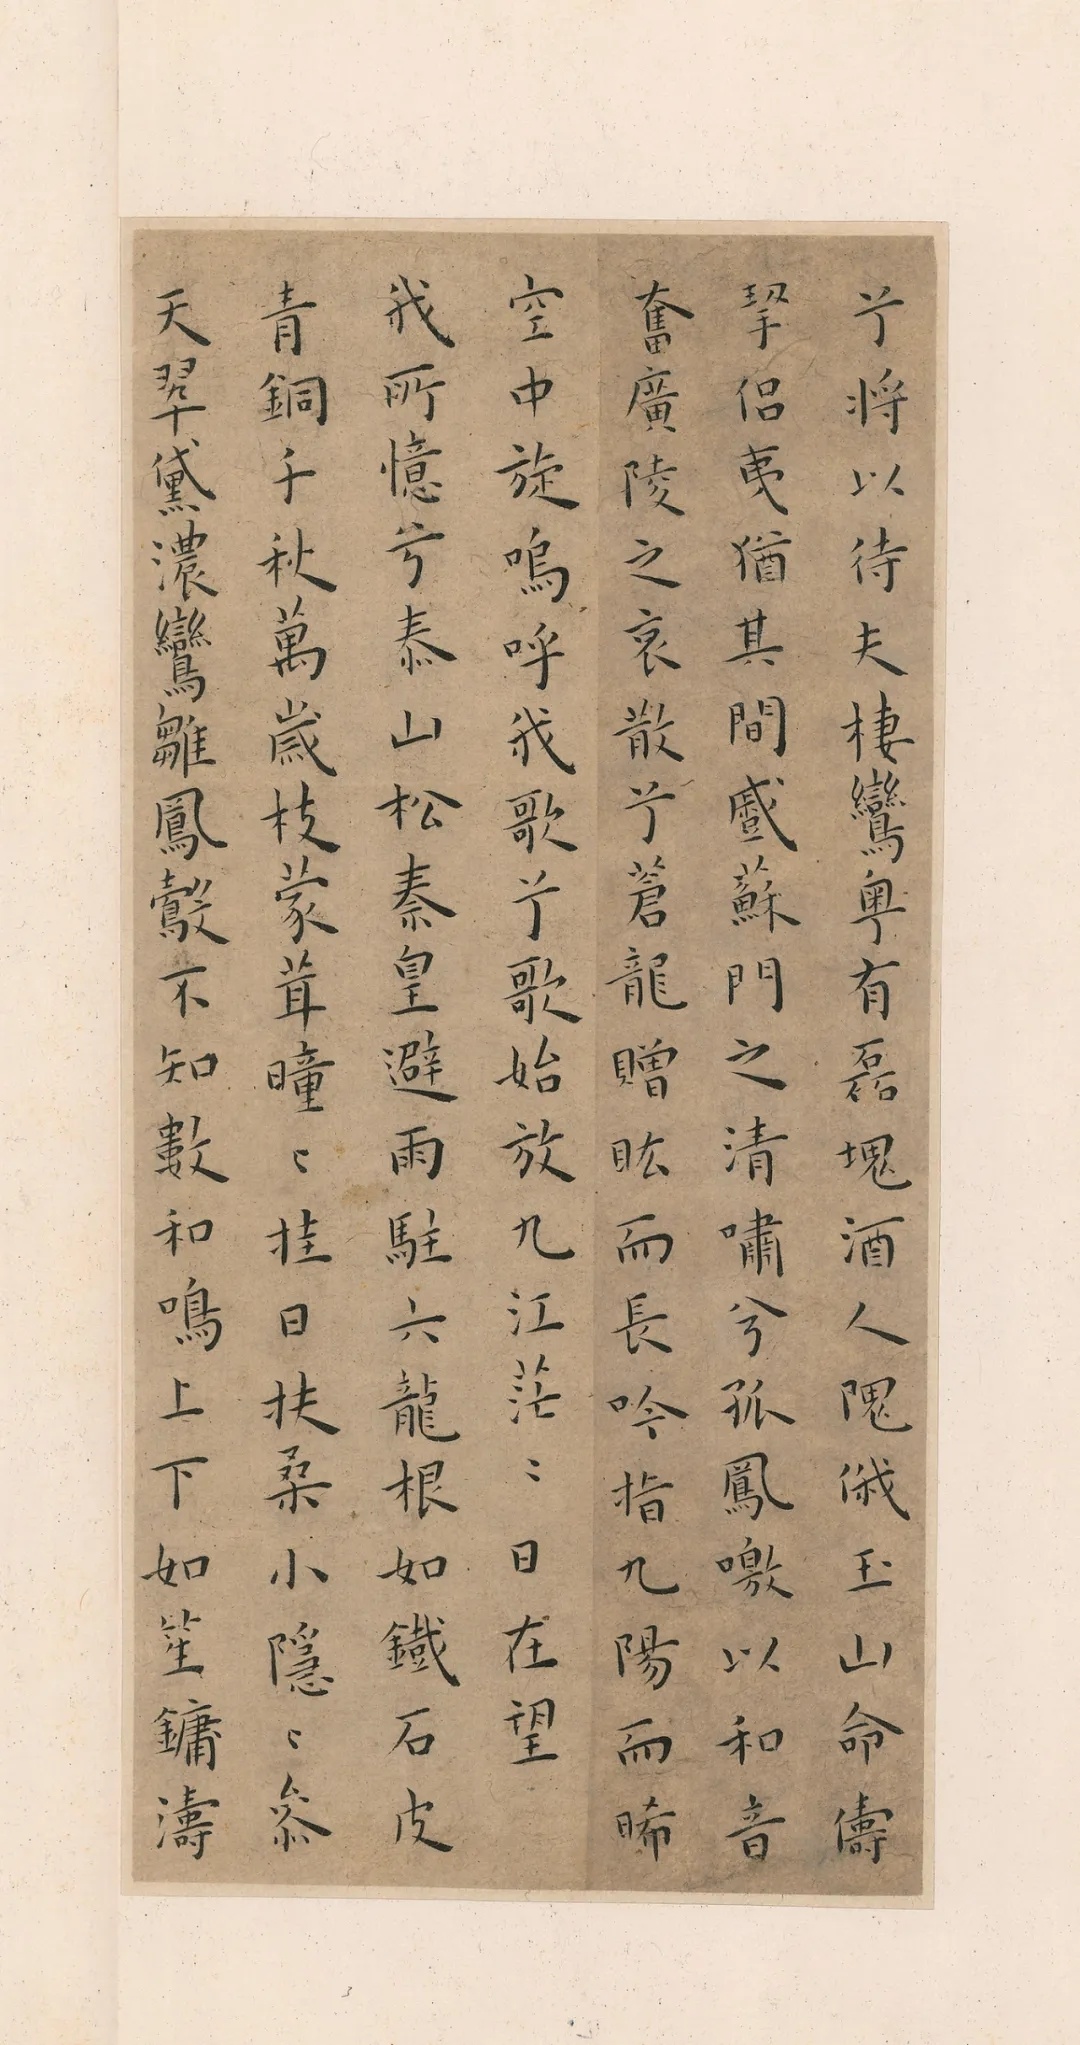 兮将以待夫棲鸞粤有磊塊酒人隗俄玉山命儔
挈侣夷猶其間戲蘇門之清嘯兮孤鳳噭以和音
奮廣陵之哀散兮蒼龍贈眩而長吟指九陽而晞
空中旋嗚呼我歌兮歌始放九江茫〻日在望
我所憶兮泰山松秦皇避雨駐六龍根如鐵石皮
青銅千秋萬歲枝蒙茸曈〻挂日扶桑小隱〻叅
天翠黛濃鸞雛鳳鷇不知數和鳴上下如笙鏞濤